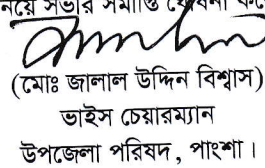 সভার সমাপ্তি
(মোঃ জালাল উদ্দিন বিশ্বাস)
ভাইস চেয়ারম্যান
উপজেলা পরিষদ, পাংশা।